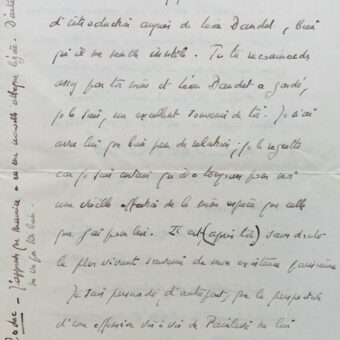 d'introduction auprès de Léon Daudet, bien
qu'il me semble inutile. Tu te recommandes
assez par toi même et Léon Daudet a gardé,
je le sais, un excellent souvenir de toi. Je n'ai
avec lui que bien peu de relations; je le regrette
car je sais autant qu'il a toujours pour moi
une vieille affection de la même espèce que celle
que j'ai pour lui. Il est (après toi) sans doute
le plus vivant souvenir de mon existence parisienne
Je suis persuadé, d'autre part, que la perspective
d'une offensive vis à vis de Painlevé ne lui